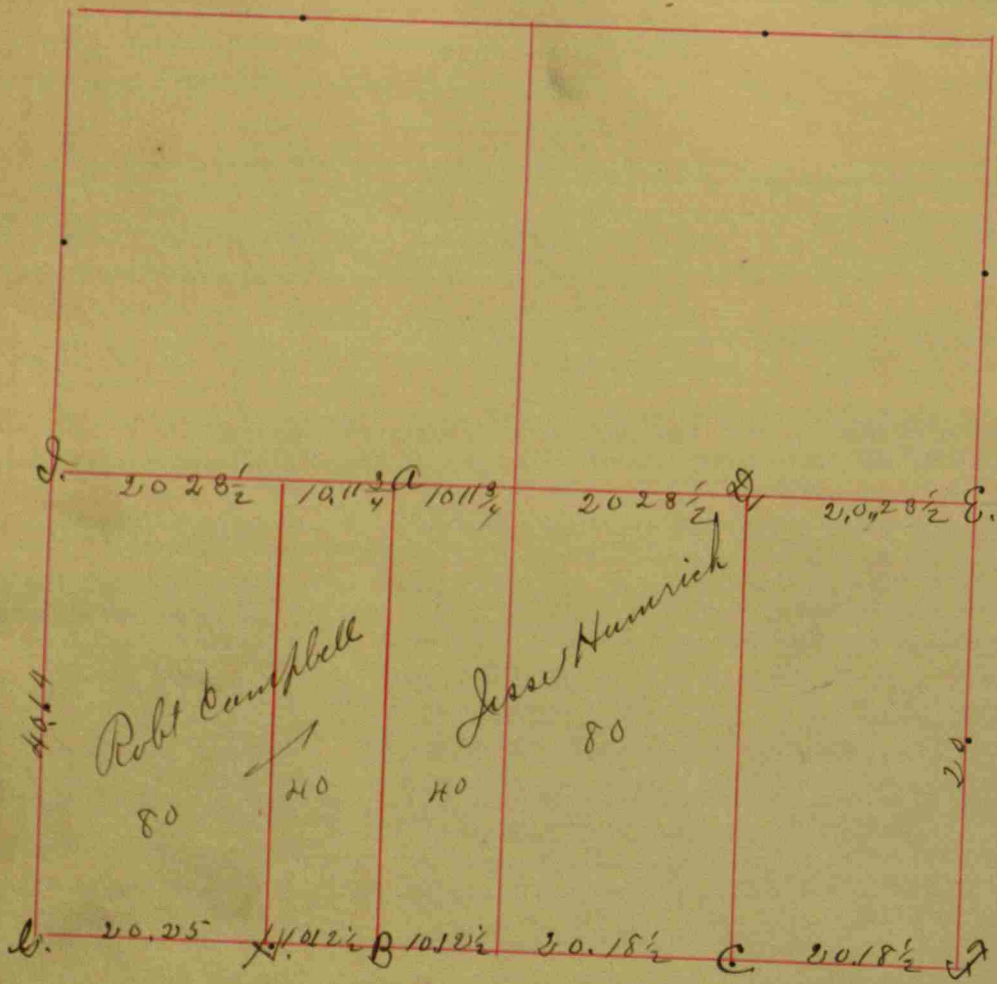 I. 20 28 1/2 10,11 3/4 A 10 11 3/4 20 28 1/2 D 20,,28 1/2 E.
40,64
20
Robt Campbell
Jesse Humrich
80
40
40
80
20.25 10 12 1/2 B 10.12 1/2 20.18 1/2 C 20.18 1/2